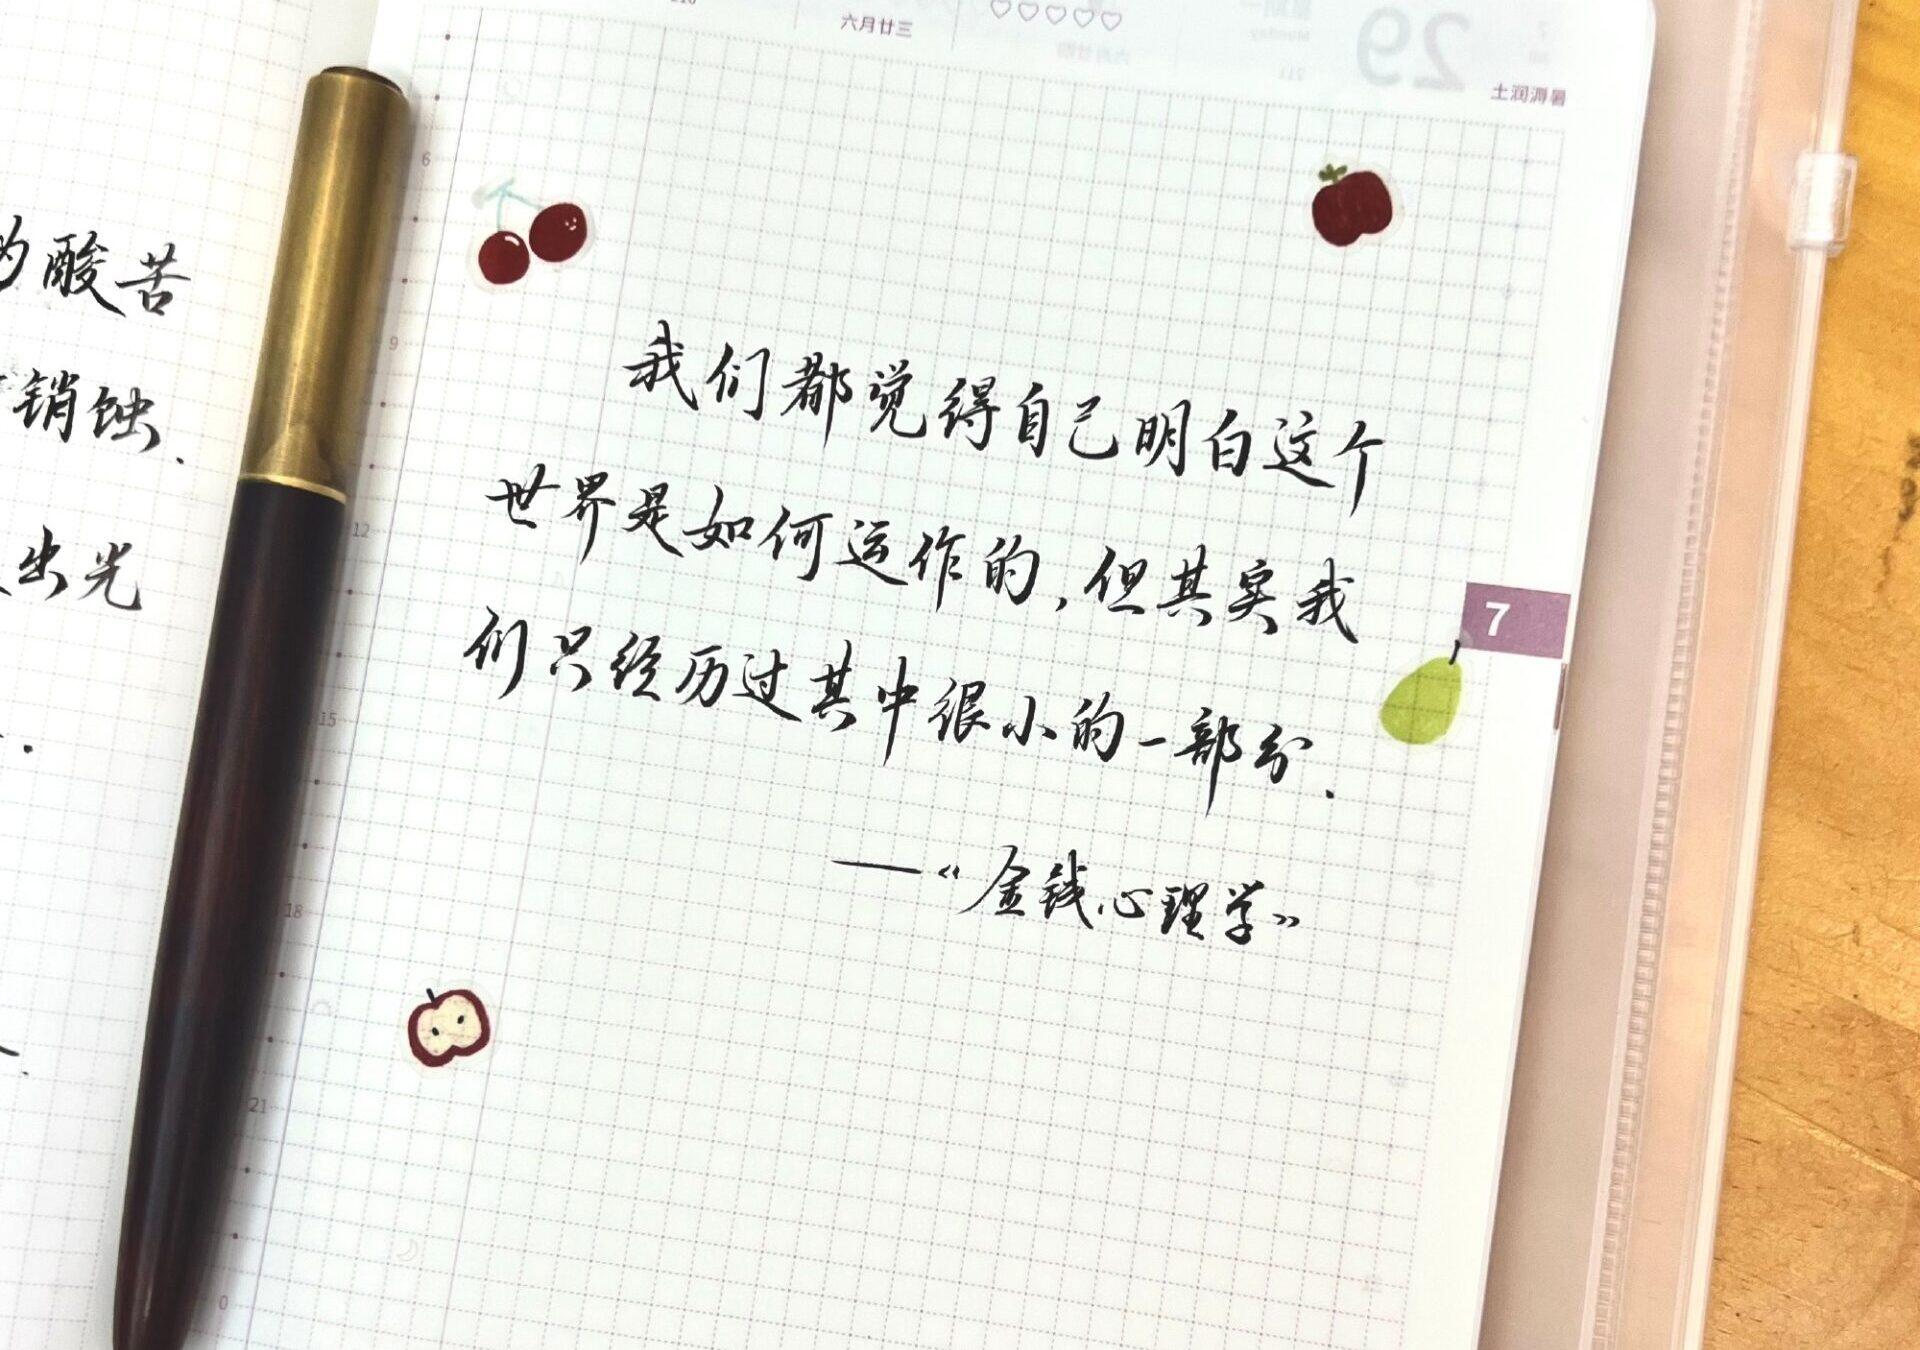 六月廿三
土润溽暑
6
9
12
15
18
21
0
7
我们都觉得自己明白这个
世界是如何运作的,但其实我
们只经历过其中很小的一部分.
——《金钱心理学》
酸苦
销蚀.
出光